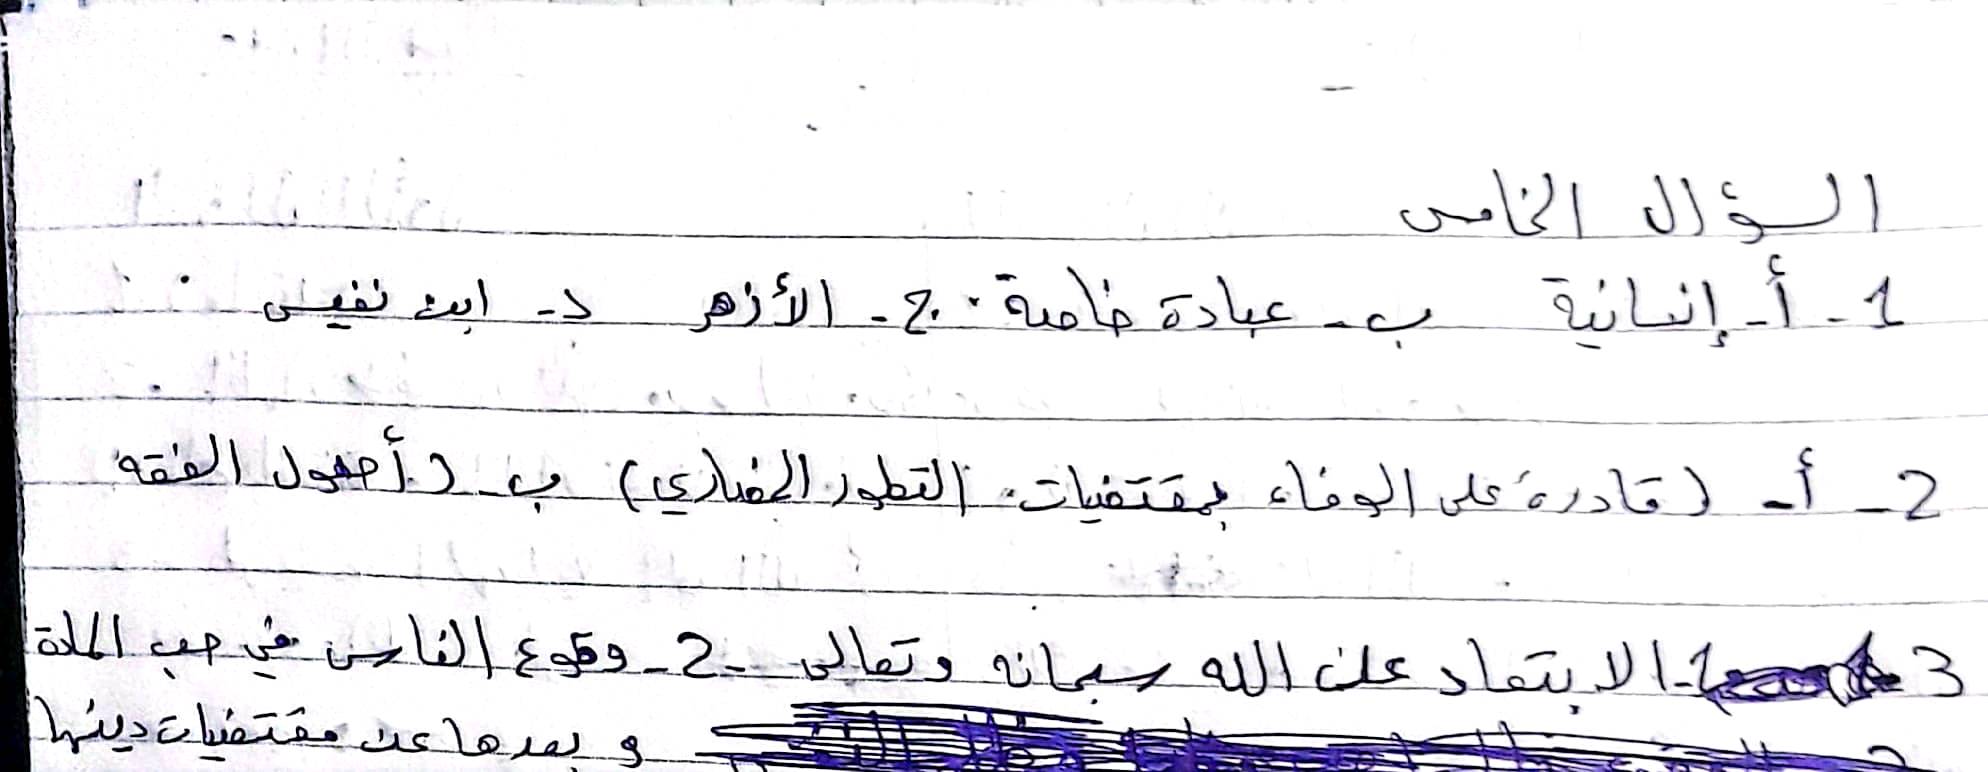 السؤال الخامس
1- أ- إنسانية ب- عبادة خاصة . ج- الأزهر د- ابن نفيس
2- أ- (قادرة على الوفاء بمقتضيات التطور الحضاري) ب- (أصول الفقه
3 1- الابتعاد عن الله سبحانه وتعالى -2- وقوع الناس في حب المادة
و بعدها عن مقتضيات دينها